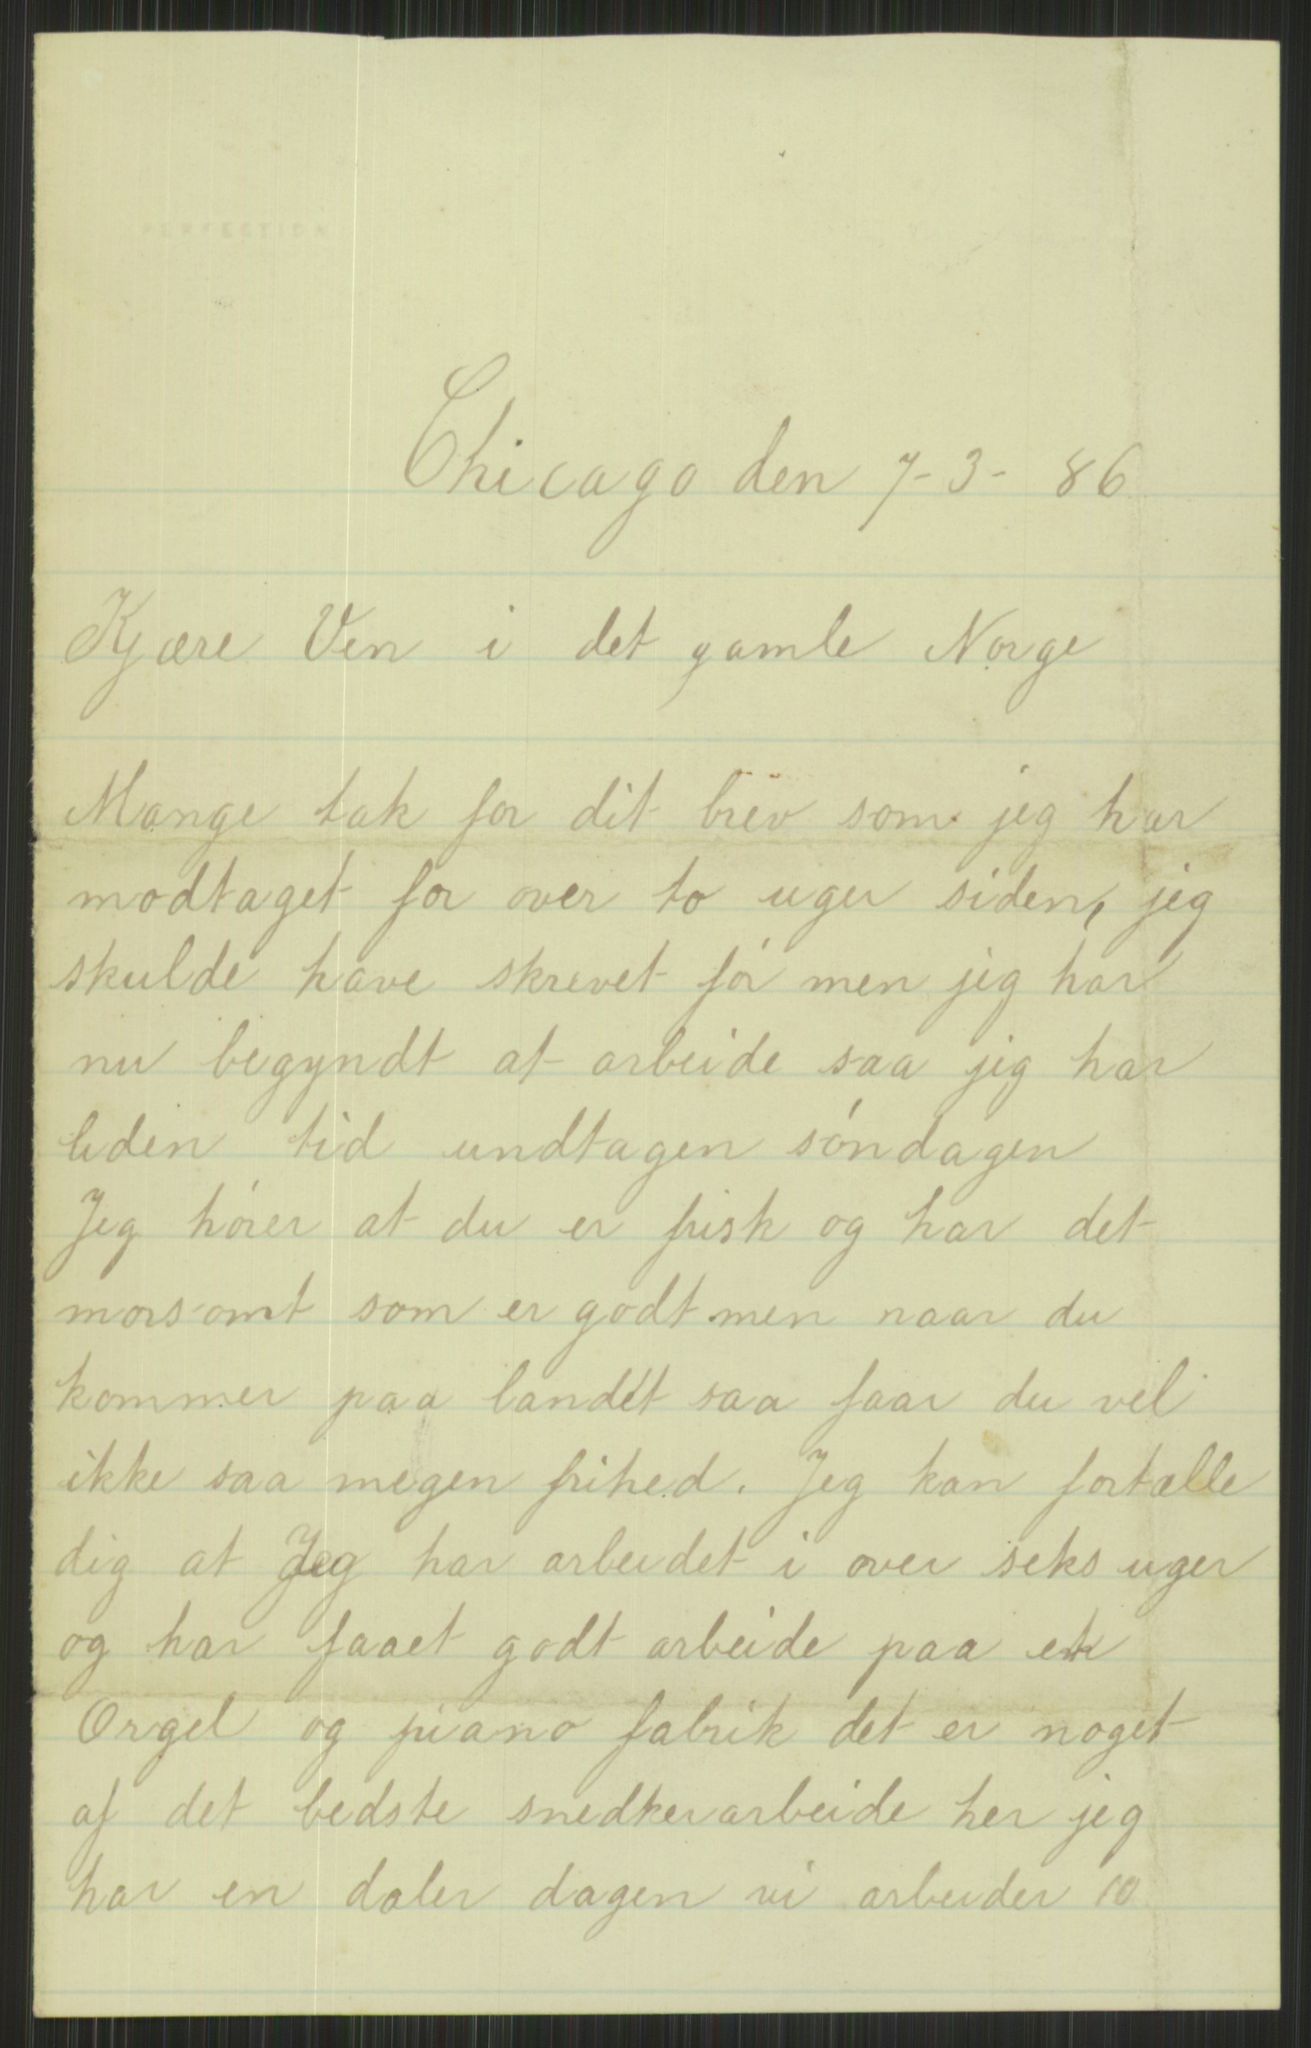 PERFECTION
Chicago den 7-3-86
Kjære Ven i det gamle Norge
Mange tak for dit brev som jeg har
modtaget for over to uger siden, jeg
skulde have skrevet før men jeg har
nu begyndt at arbeide saa jeg har
liden tid undtagen søndagen
Jeg hører at du er frisk og har det
morsomt som er godt men naar du
kommer paa landet saa faar du vel
ikke saa megen frihed. Jeg kan fortælle
dig at Jeg har arbeidet i over seks uger
og har faaet godt arbeide paa et
Orgel og piano fabrik det er noget
af det bedste snedkerarbeide her jeg
har en daler dagen vi arbeider 10